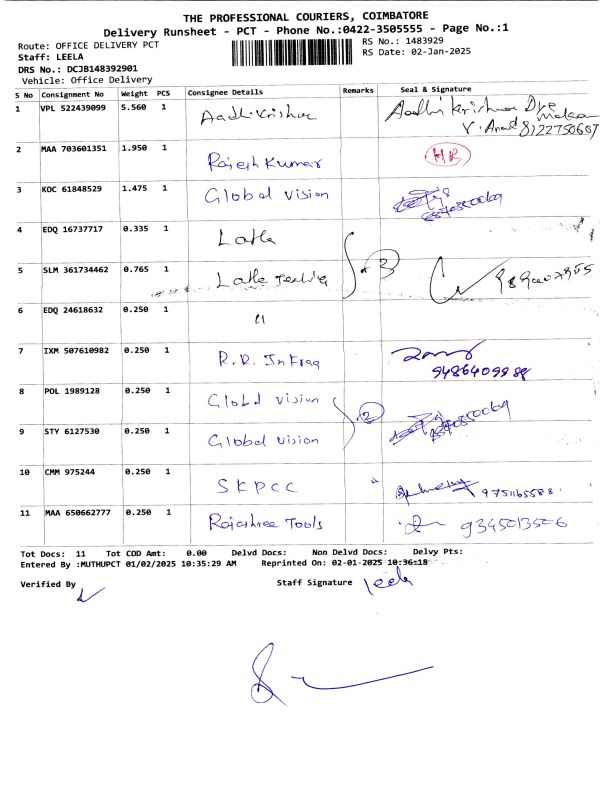 THE PROFESSIONAL COURIERS, COIMBATORE
Delivery Runsheet - PCT - Phone No.:0422-3505555 - Page No.:1
Route: OFFICE DELIVERY PCT RS No.: 1483929
Staff: LEELA RS Date: 02-Jan-2025
DRS No.: DCJB148392901
Vehicle: Office Delivery
S No Consignment No Weight PCS Consignee Details Remarks Seal & Signature
1 VPL 522439099 5.560 1 Aadhi Krishna Aadhi Krishna Dye
V. Anand 8122750607
2 MAA 703601351 1.950 1 Rajesh Kumar HR
3 KOC 61848529 1.475 1 Global Vision
4 EDQ 16737717 0.335 1 Latha
5 SLM 361734462 0.765 1 Latha 3
6 EDQ 24618632 0.250 1 "
7 IXM 507610982 0.250 1 R.R. Infraa
8 POL 1989128 0.250 1 Global Vision 2
9 STY 6127530 0.250 1 Global Vision
10 CMM 975244 0.250 1 SKPCC 9751165588
11 MAA 650662777 0.250 1 Rajashree Tools 9345013506
Tot Docs: 11 Tot COD Amt: 0.00 Delvd Docs: Non Delvd Docs: Delvy Pts:
Entered By :MUTHUPCT 01/02/2025 10:35:29 AM Reprinted On: 02-01-2025 10:36:18
Verified By Staff Signature Leela